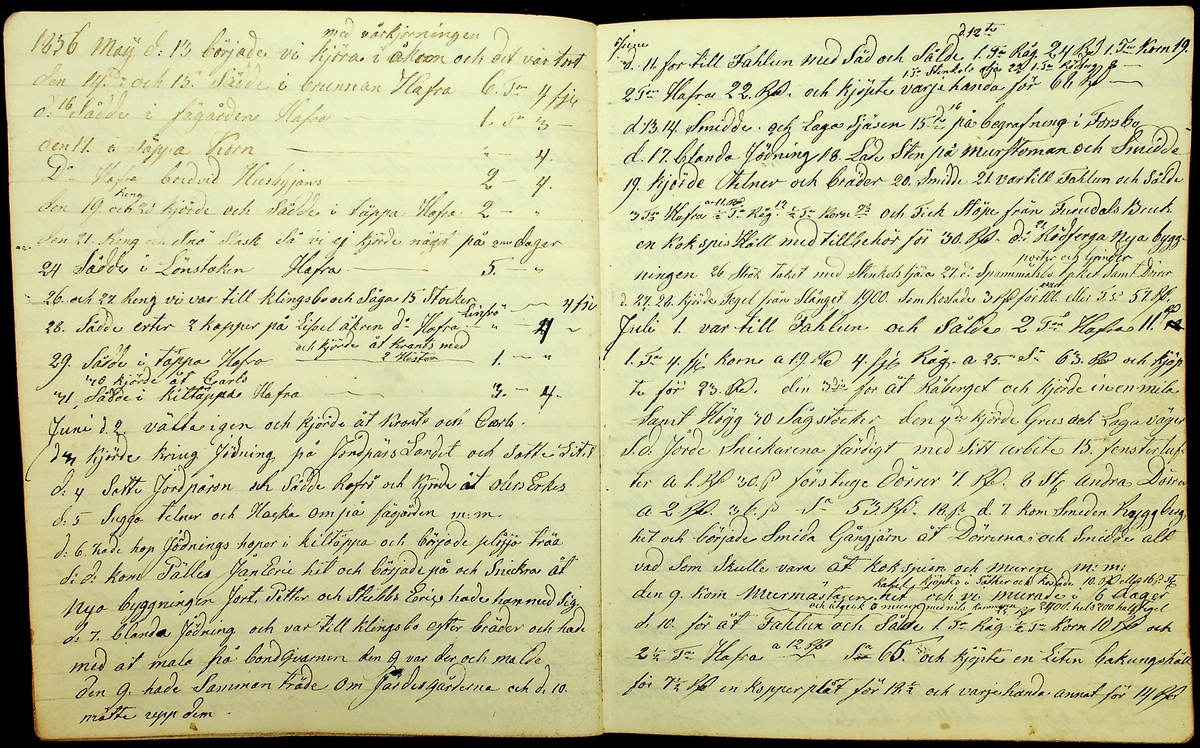 med vårkjörningen
1836 Maÿ d: 13 började vi kjöra i åkren och det var tort
den 14de och 15. Sådde i brunnan Hafra 6. Tr 4 fjl
d: 16 Sådde i fägården Hafra — 1. Tr 3 —
den 17. i täppa Korn — " — 4.
Do Hafra bredvid Husbyjans — 2 — 4.
den 19. och 20 Reng kjörde och Sådde i täppa Hafra 2 — "
den 21. Reng och Snö Slask Så vi ej kjörde något på dager
24 Sådde i Lönstaken Hafra — 5. — "
26. och 27 Reng vi var till klingsbo och Såga 15 Stocker
28. Sådde erter 2 kapper på Eissel åkren do Hafra " — 4
Linfrö — 4 fjl
och kjörde åt krants med
29. Sådde i täppa Hafra 2 Hestar 1. — "
30 kjörde åt Carls
31, Sådde i kiltäppa Hafra — 3. — 4.
Juni d. 2 välta igen och kjörde åt krants och Carls.
d 3 kjörde kring Jödning på Jordpärs Landet och Satte Litet
d: 4 Satte Jordpäron och Sådde Rofrö och kjörde åt OlarsErkes
d: 5 hugga telner och Hacka om på fägården m: m.
d: 6. hade hop Jödnings hoper i kiltäppa och började plöja träa
d: d: kom Pälles JanEric hit och började på och Snickra åt
nya byggningen Jort Pitter och Stubbs Erics hade han med Sig
d: 7. blanda Jödning och var till klingsbo efter bräder och hade
med at mala på bondqvarnen den 9 var der och malde
den 9. hade Samman träde om Järdesgårderna och d. 10.
måste upp dem.
Juni
d. 11. for till Fahlun med Säd och Sålde 1. Tr Råg 24 Rd 1. Tr Korn 19.
d 12te
2 Tr Hafra 22. Rd. och kjöpte varjehanda för 66 Rd
d 13. 14. Smidde och Laga Sjäsen 15 16 på begrafning i Forsbo
d. 17. blanda Jödning 18. Lade Sten på murstoman och Smidde
19. kjörde telner och bräder 20. Smidde 21. var till Fahlun och Sålde
3 Tr Hafra a 11 Rd ½ Tr Råg. 12 ½ Tr Korn och Fick Höpe från Furudals Bruk
en kokspis Häll med tillbehör för 30. Rd. d: Rödferga nya bygg-
portar och Grinder
ningen 26. Strök taket med Stenkolstjära 27. d: Spannmålsbo taket Samt Dörrer
d. 27. 28. kjörde Tegel från Slånget 1900. Som kostade 3 Rd för 100. eller 57 Rd
Juli 1. var till Fahlun och Sålde 2 Tr Hafra 11.
1. Tr 4. fjl korn a 19. Rd 4 fjl Råg. a 25 Sa 63. Rd och kjöp
te för 23. Rd. den 3die for åt Råberget och kjörde in en mila
Samt Högg 30 Sågstocker den 4de kjörde Grus och Laga väger
S.d. Jorde Snickarena färdigt med Sitt arbete 15. fensterluf-
ter a 1. Rd 30. s förstuge Dörrer 7. Rd. 6 St andra Dörrer
a 2 Rd. 36. s Sa 53 Rd. 18. s d. 7. kom Smeden Haggberg
hit och började Smida Gångjärn åt Dörrena och Smidde alt
vad Som Skulle vara åt kokspisen och muren m: m:
Kakel kjöptes i Säter och kostade 10. Rd eller 16 s St.
den 9. kom Murmästaren hit och vi murade i 6 dager
och åtgick i muren med nils kammaren 2400. hela 200 halftegel
d. 10. for åt Fahlun och Sålde 1. Tr Råg ½ Tr Korn 10 Rd och
2½ Tr Hafra a 12 Rd Sa 65. och kjöpte en Liten bakungshäll
för 7½ Rd en kopper plåt för 12½ och varjehanda annat för 14 Rd